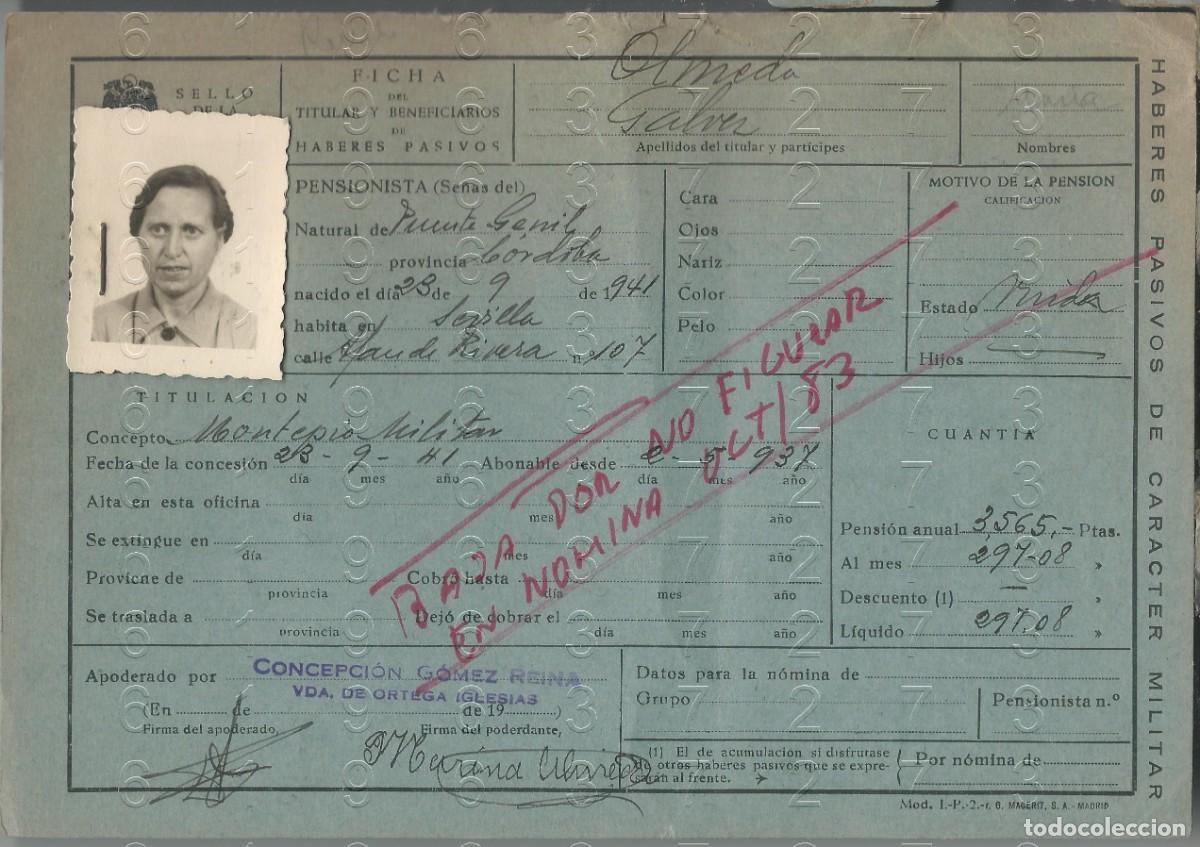 SELLO
DE LA
FICHA
DEL
TITULAR Y BENEFICIARIOS
DE
HABERES PASIVOS
Olmedo
Galvez
Apellidos del titular y partícipes
Nombres
PENSIONISTA (Señas del)
Natural de Puente Genil
provincia Córdoba
nacido el día 23 de 9 de 941
habita en Sevilla
calle de Rivera n.º 107
Cara
Ojos
Nariz
Color
Pelo
MOTIVO DE LA PENSION
CALIFICACION
Estado Viuda
Hijos
TITULACION
Concepto Montepio Militar
Fecha de la concesión 23 - 9 - 41 Abonable desde 2 - 5 - 937
día mes año día mes año
Alta en esta oficina
día mes año
Se extingue en
día mes año
Proviene de Cobró hasta
provincia día mes año
Se traslada a Dejó de cobrar el
provincia día mes año
BAJA POR NO FIGURAR
EN NOMINA OCT/83
CUANTIA
Pensión anual 3,565,- Ptas.
Al mes 297-08 »
Descuento (1) — »
Líquido 297.08 »
Apoderado por CONCEPCIÓN GÓMEZ REINA
VDA. DE ORTEGA IGLESIAS
(En de de 19 )
Firma del apoderado,
Firma del poderdante,
Datos para la nómina de
Grupo
Pensionista n.º
(1) El de acumulación si disfrutase
de otros haberes pasivos que se expre-
sarán al frente.
Por nómina de
Mod. I.-P.-2.-r. 6. MAGERIT, S. A. - MADRID
HABERES PASIVOS DE CARACTER MILITAR
todocoleccion